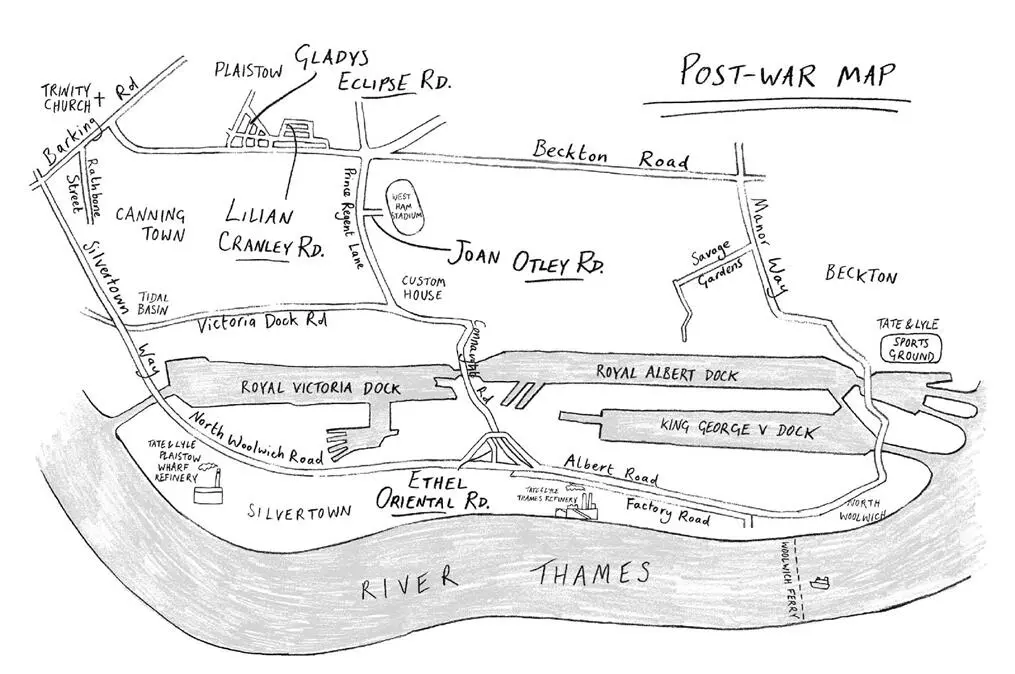 POST-WAR MAP
GLADYS
ECLIPSE RD.
PLAISTOW
TRINITY
CHURCH
Barking Rd
Beckton Road
Rathbone
Street
Prince Regent Lane
WEST
HAM
STADIUM
CANNING
TOWN
LILIAN
CRANLEY RD.
JOAN OTLEY RD.
Manor Way
Savage
Gardens
BECKTON
Silvertown Way
TIDAL
BASIN
CUSTOM
HOUSE
Victoria Dock Rd
Connaught Rd
TATE & LYLE
SPORTS
GROUND
ROYAL VICTORIA DOCK
ROYAL ALBERT DOCK
KING GEORGE V DOCK
North Woolwich Road
TATE & LYLE
PLAISTOW
WHARF
REFINERY
ETHEL
ORIENTAL RD.
Albert Road
TATE & LYLE
THAMES REFINERY
Factory Road
SILVERTOWN
NORTH
WOOLWICH
WOOLWICH FERRY
RIVER THAMES